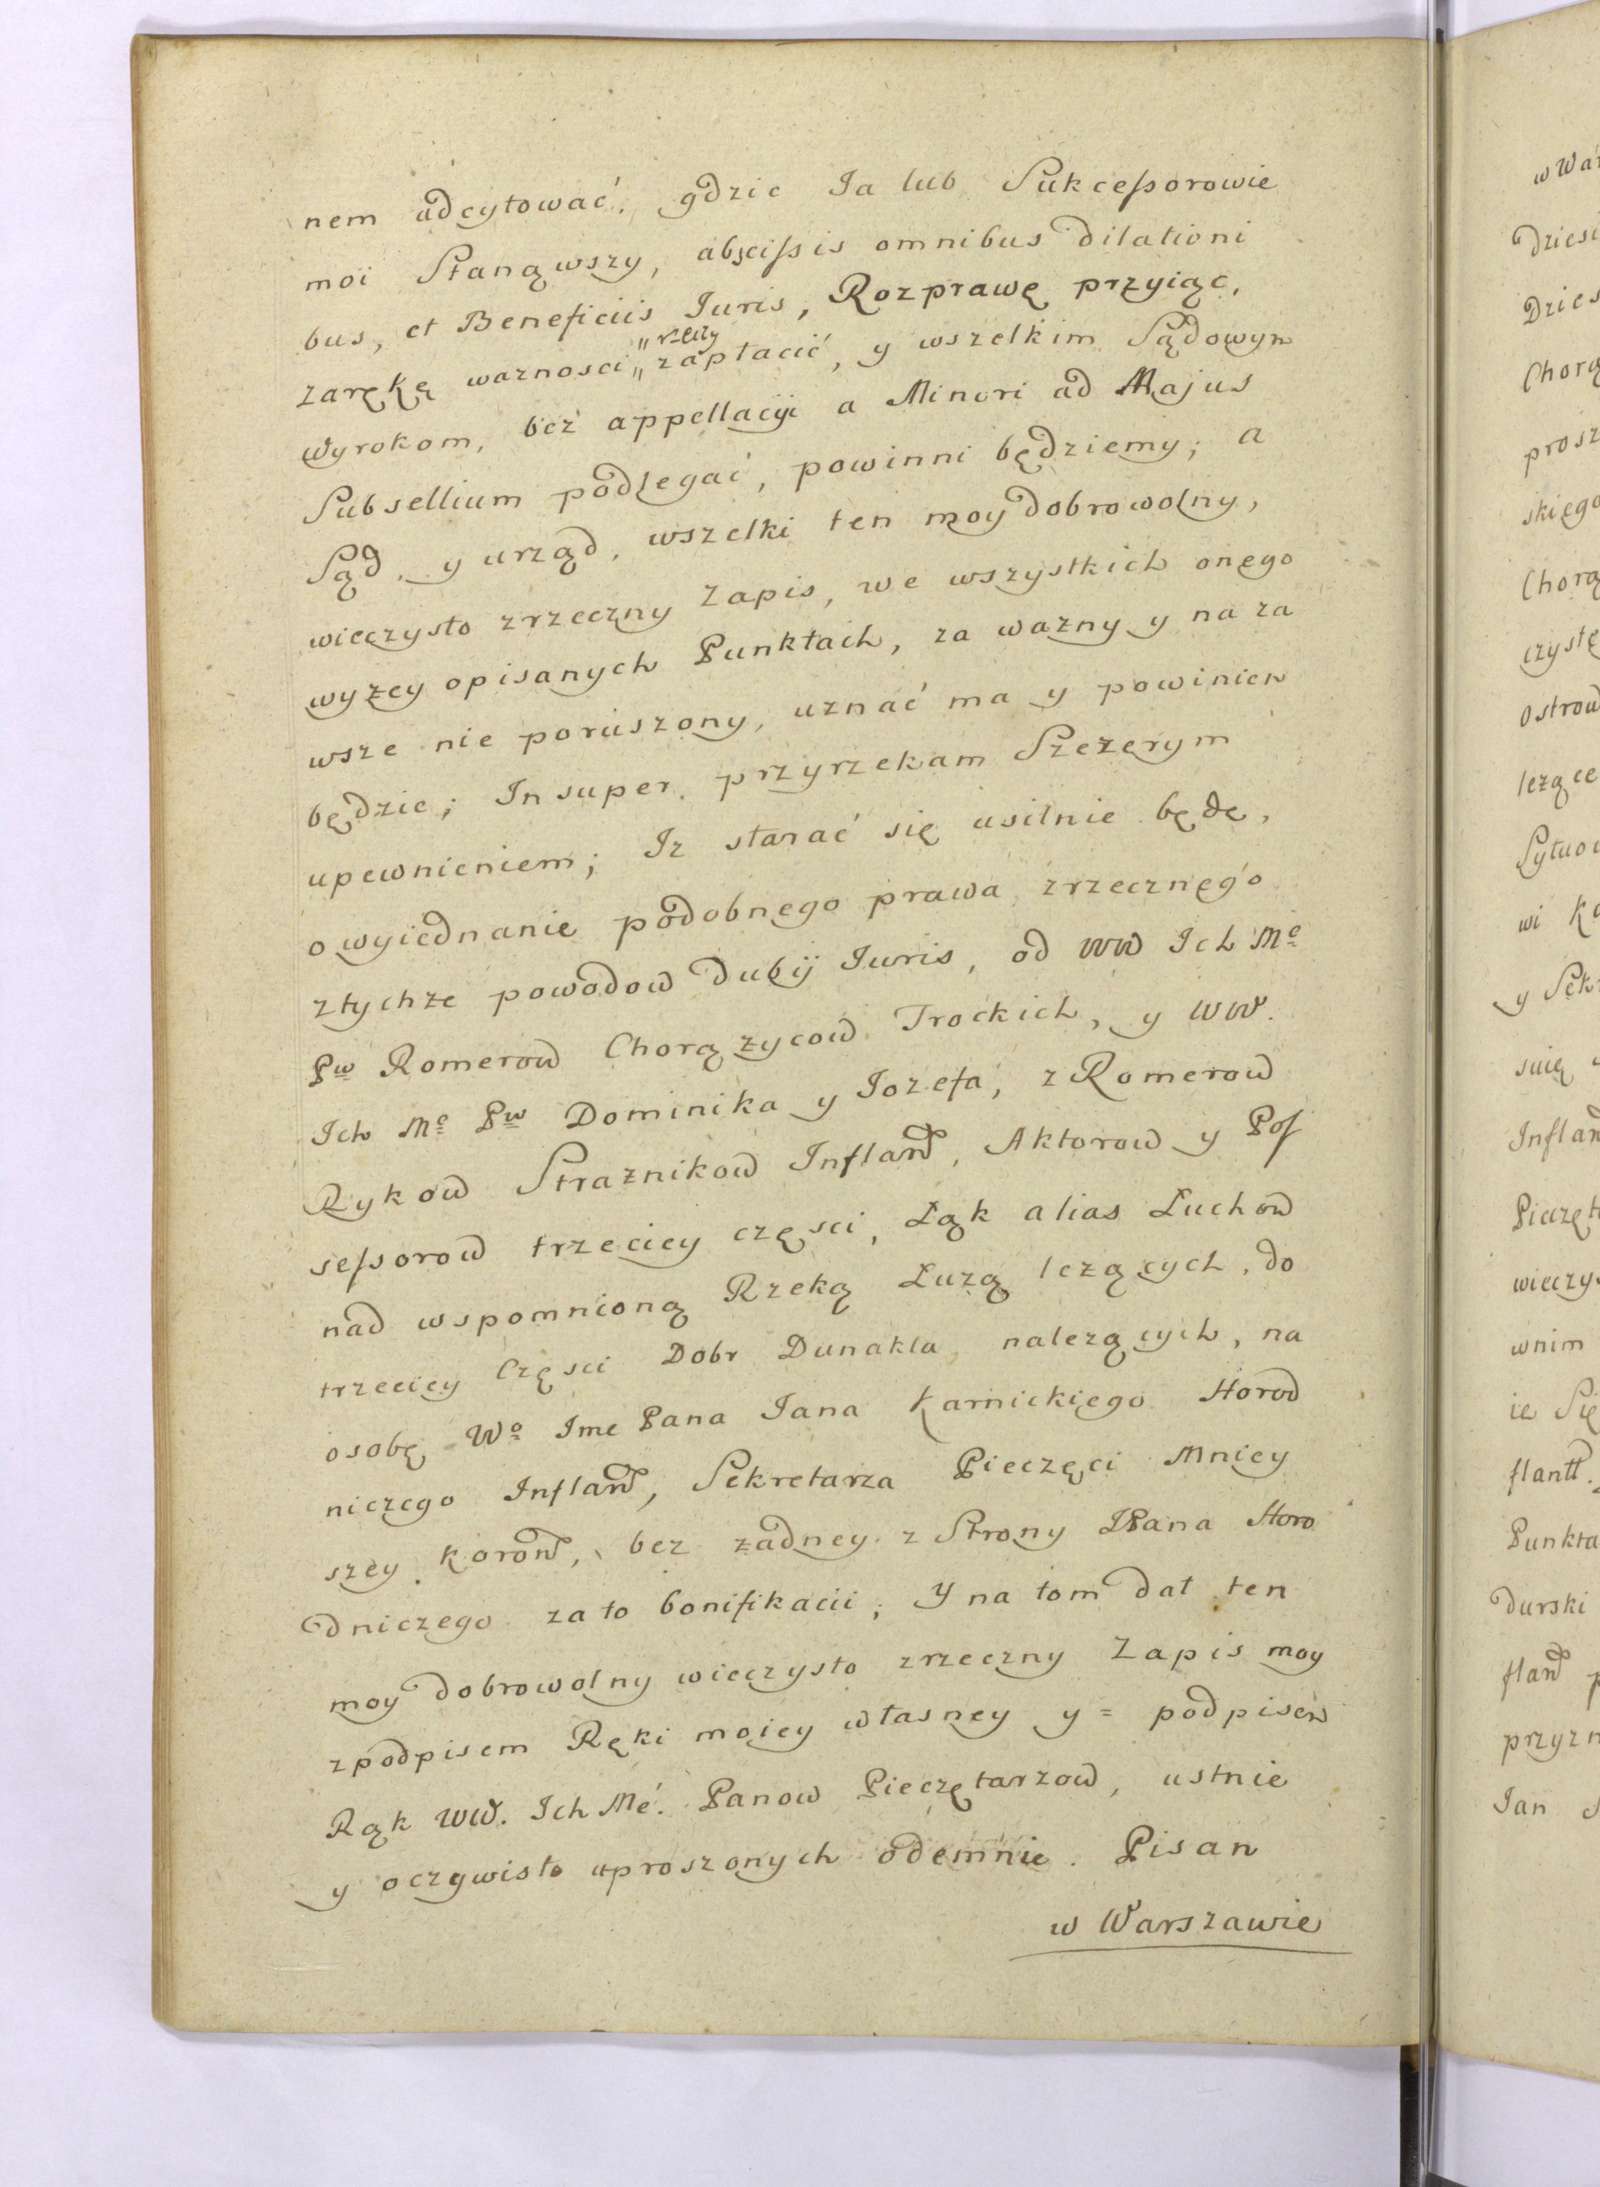 nem adcytować, gdzie Ja lub Sukcessorowie
moi Stanąwszy, abscissis omnibus dilationi
bus, et Beneficiis Juris, Rozprawę przyiąc,
zarękę waznosci „ zapłacić, y wszelkim Sądowym
wyrokom, bez appellacyi a Minori ad Majus
Subsellium podlegać, powinni będziemy; a
Sąd, y urząd, wszelki ten moy dobrowolny,
wieczysto zrzeczny Zapis, we wszystkich onego
wyżey opisanych Punktach, za ważny y na za
wsze nie poruszony, uznać ma y powinien
będzie; Insuper, przyrzekam Szczerym
upewnieniem; Iz starać się usilnie będę,
o wyiednanie podobnego prawa zrzecznego
ztychże powodow Dubij Juris, od WW Ich Mc
Pw Romerow Chorążycow Trockich, y WW.
Ich Mc Pw Dominika y Jozefa, z Romerow
Rykow Strażnikow Infland, Aktorow y Pos
sessorow trzeciey części, Łąk alias Łuchow
nad wspomnioną Rzeką Łużą leżących, do
trzeciey Części Dobr Dunakla, należących, na
osobę Wo Jme Pana Jana Karnickiego Horod
niczego Infland, Sekretarza Pieczęci Mniey
szey Koron, bez żadney z Strony JPana Horo
dniczego za to bonifikacii; Y na tom dał ten
moy dobrowolny wieczysto zrzeczny Zapis moy
z podpisem Ręki moiey własney y = podpisem
Rąk WW. Ich Mć. Panow Pieczętarzow, ustnie
y oczywisto uproszonych odemnie. Pisan
w Warszawie
w War
Chorą
prosz
skiego
Chorą
czystę
Ostrow
leżące
wi Ka
Inflan
Pieczęt
wieczys
wnim
Punkta
durski
przyzn
Jan